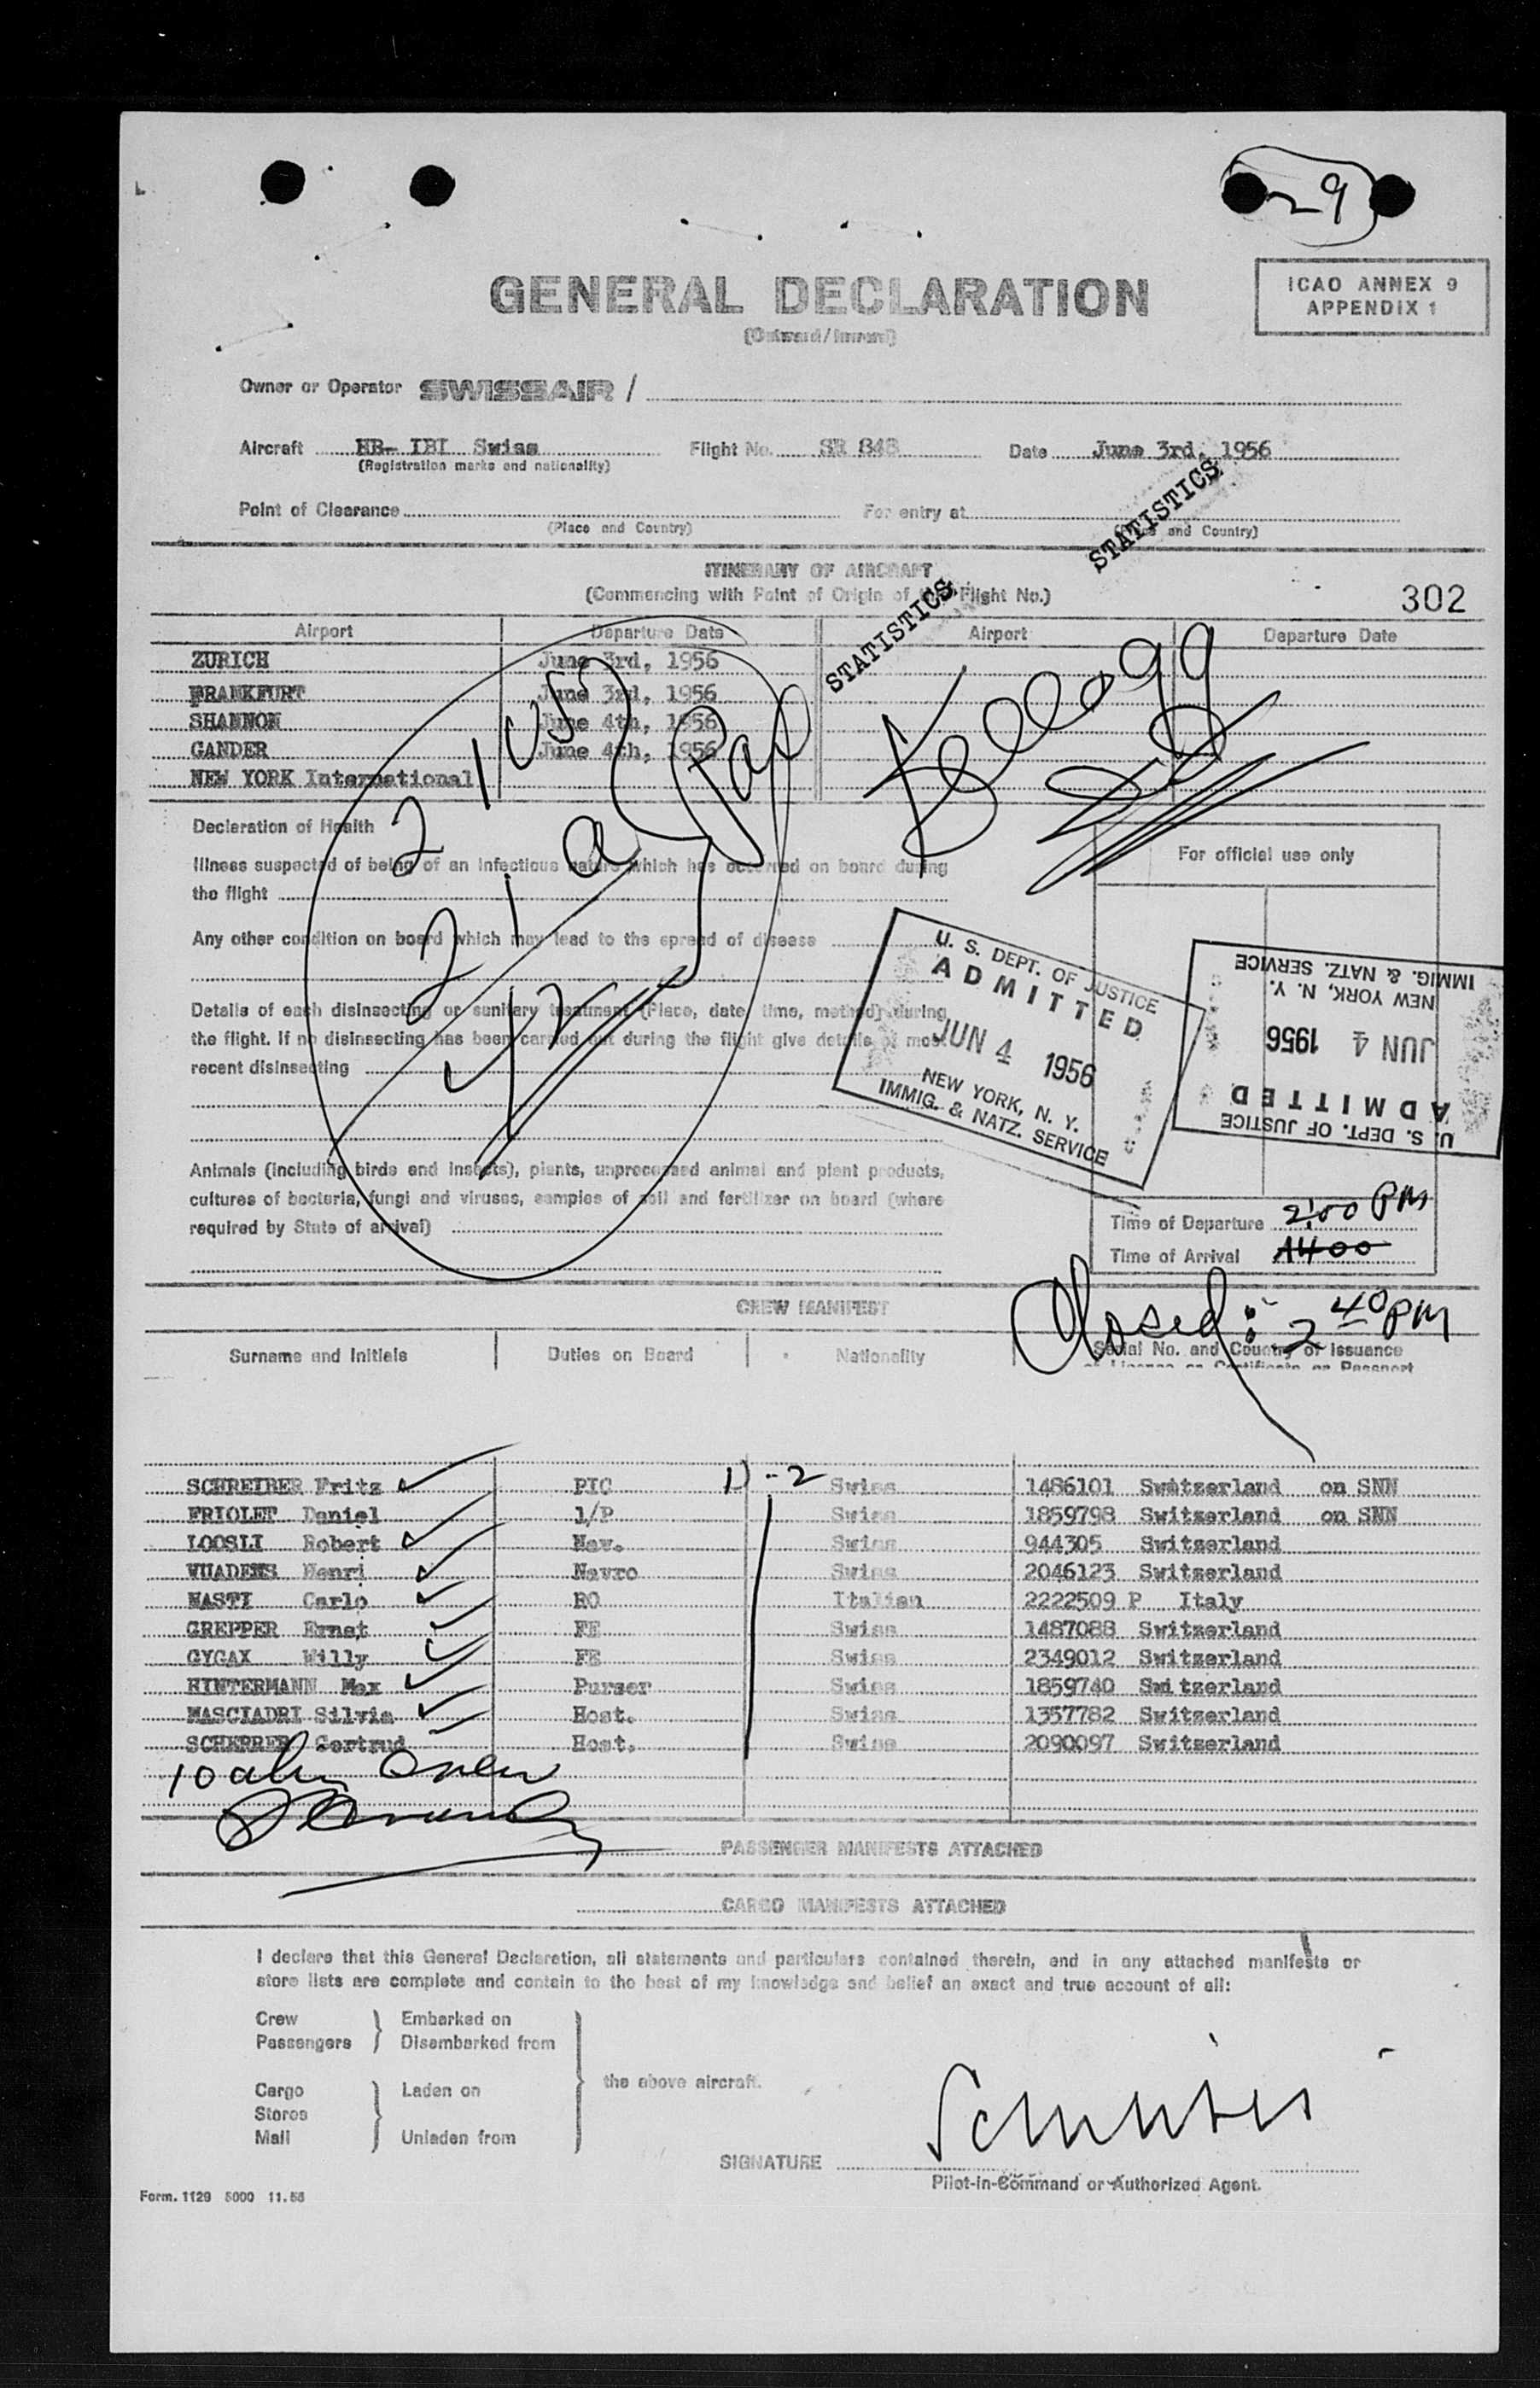 29
GENERAL DECLARATION
(Outward/Inward)
ICAO ANNEX 9
APPENDIX 1
Owner or Operator SWISSAIR /
Aircraft HB- IBI Swiss Flight No. SR 848 Date June 3rd, 1956
(Registration marks and nationality)
Point of Clearance For entry at
(Place and Country) and Country)
STATISTICS
STATISTICS
ITINERARY OF AIRCRAFT
(Commencing with Point of Origin of Flight No.)
302
Airport Departure Date Airport Departure Date
ZURICH June 3rd, 1956
FRANKFURT June 3rd, 1956
SHANNON June 4th, 1956
GANDER June 4th, 1956
NEW YORK International
Kellogg
Declaration of Health
Illness suspected of being of an infectious nature which has occurred on board during
the flight
Any other condition on board which may lead to the spread of disease
Details of each disinsecting or sanitary treatment (Place, date, time, method) during
the flight. If no disinsecting has been carried out during the flight give details of most
recent disinsecting
Animals (including birds and insects), plants, unprocessed animal and plant products,
cultures of bacteria, fungi and viruses, samples of soil and fertilizer on board (where
required by State of arrival)
21 USC
21 a
42
For official use only
U. S. DEPT. OF JUSTICE
ADMITTED
JUN 4 1956
NEW YORK, N. Y.
IMMIG. & NATZ. SERVICE
U. S. DEPT. OF JUSTICE
ADMITTED
JUN 4 1956
NEW YORK, N. Y.
IMMIG. & NATZ. SERVICE
Time of Departure 2:00 PM
Time of Arrival 1400
Closed: 2 40 PM
CREW MANIFEST
Surname and Initials Duties on Board Nationality Serial No. and Country of Issuance
of License or Certificate or Passport
SCHREIBER Fritz PIC D-2 Swiss 1486101 Switzerland on SNN
FRIOLET Daniel 1/P Swiss 1859798 Switzerland on SNN
LOOSLI Robert Nav. Swiss 944305 Switzerland
VUADENS Henri Navro Swiss 2046123 Switzerland
NASTI Carlo RO Italian 2222509 P Italy
GREPPER Ernst FE Swiss 1487088 Switzerland
GYGAX Willy FE Swiss 2349012 Switzerland
HINTERMANN Max Purser Swiss 1859740 Switzerland
MASCIADRI Silvia Host. Swiss 1357782 Switzerland
SCHERRER Gertrud Host. Swiss 2090097 Switzerland
10 alien crew
PASSENGER MANIFESTS ATTACHED
CARGO MANIFESTS ATTACHED
I declare that this General Declaration, all statements and particulars contained therein, and in any attached manifests or
store lists are complete and contain to the best of my knowledge and belief an exact and true account of all:
Crew Embarked on
Passengers Disembarked from
the above aircraft.
Cargo Laden on
Stores
Mail Unladen from
SIGNATURE
Pilot-in-Command or Authorized Agent.
Form. 1129 5000 11.55